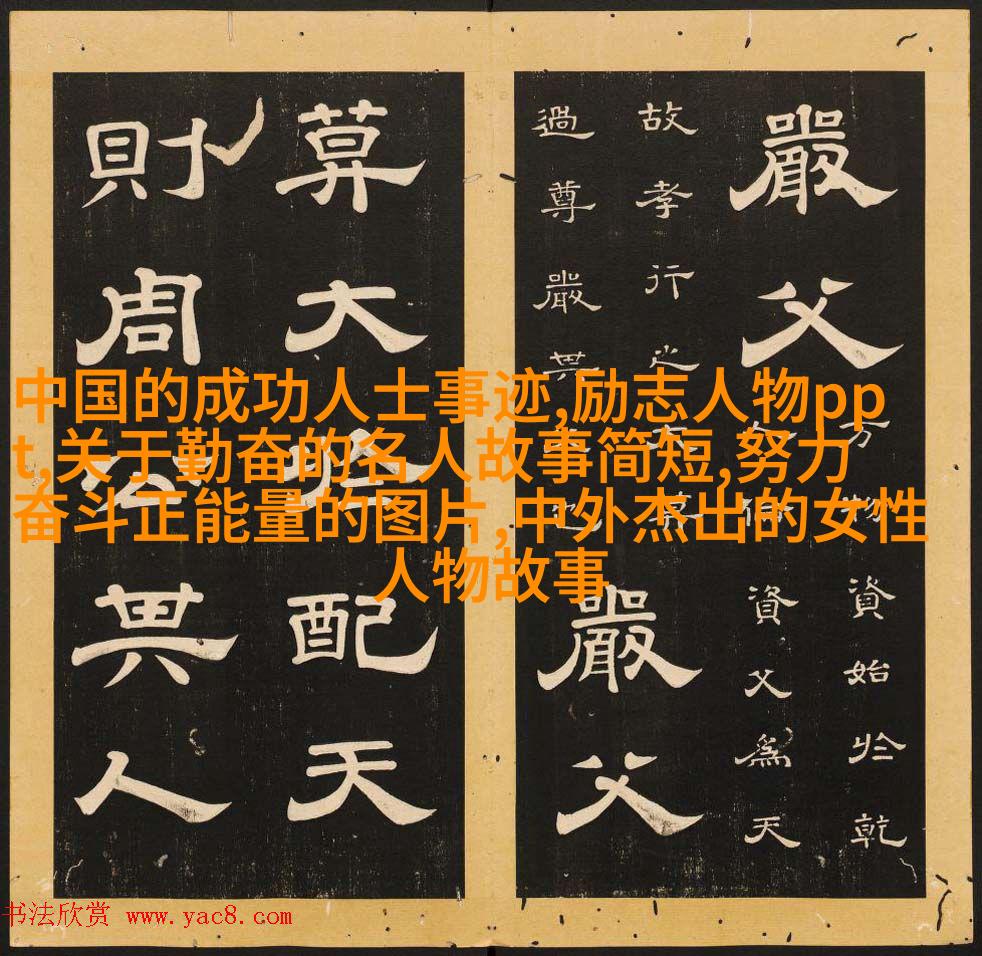 嚴父
万物資始於乾
人倫資父為天
故孝行之大莫
過尊嚴其父也
嚴父
莫大於配天
則周公其人
中国的成功人士事迹,励志人物pp
t,关于勤奋的名人故事简短,努力
奋斗正能量的图片,中外杰出的女性
人物故事
书法欣赏 www.yac8.com